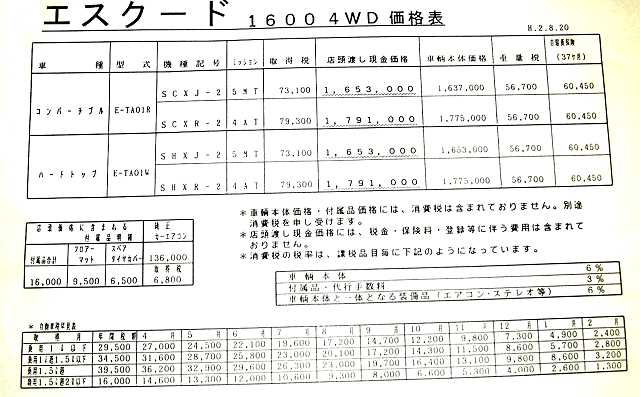 エスクード 1600 4WD 価格表
H.2.8.20
車 種 型 式 機種記号 ミッション 取得税 店頭渡し現金価格 車輌本体価格 重量税 自賠責保険 (37ヶ月)
コンバーチブル E-TA01R SCXJ-2 5MT 73,100 1,653,000 1,637,000 56,700 60,450
SCXR-2 4AT 79,300 1,791,000 1,775,000 56,700 60,450
ハードトップ E-TA01W SHXJ-2 5MT 73,100 1,653,000 1,653,000 56,700 60,450
SHXR-2 4AT 79,300 1,791,000 1,775,000 56,700 60,450
店頭価格に含まれる付属品明細 純正カーエアコン
付属品合計 フロアーマット スペアタイヤカバー 136,000
取得税
16,000 9,500 6,500 6,800
*車輌本体価格・付属品価格には、消費税は含まれておりません。別途
消費税を申し受けます。
*店頭渡し現金価格には、税金・保険料・登録等に伴う費用は含まれて
おりません。
*消費税の税率は、課税品目毎に下記のようになっています。
車輌本体 6%
付属品・代行手数料 3%
車輌本体と一体となる装備品(エアコン・ステレオ等) 6%
*自動車税早見表
取得月 年間税額 4月 5月 6月 7月 8月 9月 10月 11月 12月 1月 2月
乗用1l以下 29,500 27,000 24,500 22,100 19,600 17,200 14,700 12,200 9,800 7,300 4,900 2,400
乗用1l超1.5l以下 34,500 31,600 28,700 25,800 23,000 20,100 17,200 14,300 11,500 8,600 5,700 2,800
乗用1.5l超 39,500 36,200 32,900 29,600 26,300 23,000 19,700 16,400 13,100 9,800 6,600 3,200
16,000 14,600 13,300 12,000 10,600 9,300 8,000 6,600 5,300 4,000 2,600 1,300